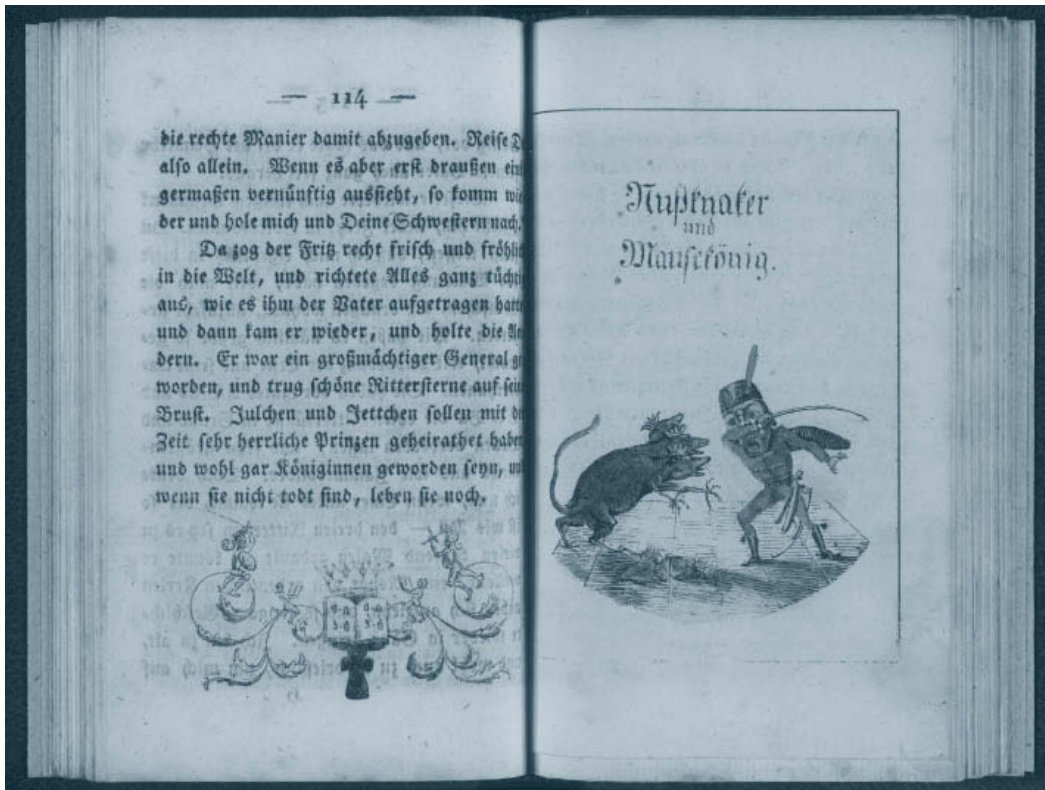 — 114 —
die rechte Manier damit abzugeben. Reise D
alſo allein. Wenn es aber erſt draußen ein
germaßen vernünftig ausſieht, ſo komm wie
der und hole mich und Deine Schweſtern nach.
Da zog der Fritz recht friſch und fröhlich
in die Welt, und richtete Alles ganz tüchti
aus, wie es ihm der Vater aufgetragen hatte
und dann kam er wieder, und holte die An
dern. Er war ein großmächtiger General ge
worden, und trug ſchöne Ritterſterne auf ſein
Bruſt. Julchen und Jettchen ſollen mit der
Zeit ſehr herrliche Prinzen geheirathet haben
und wohl gar Königinnen geworden ſeyn, und
wenn ſie nicht todt ſind, leben ſie noch.
Nußknaker
und
Mauſekönig.